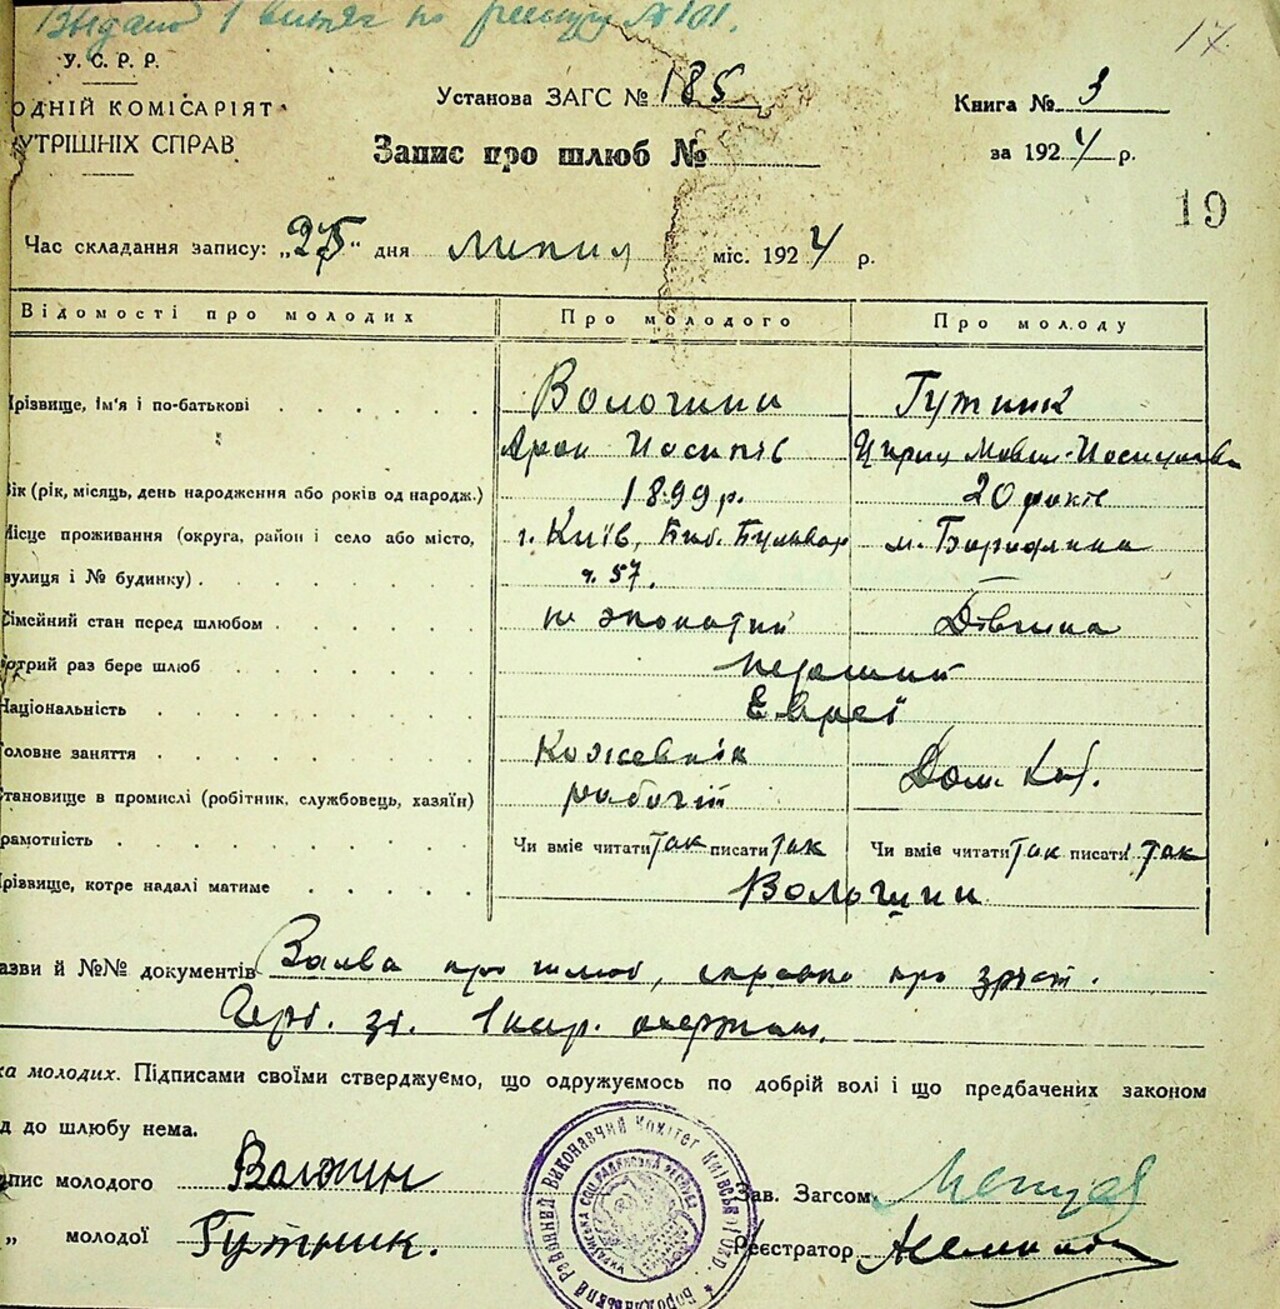 Выдано 1 витяг по реестру № 101.
17.
У. С. Р. Р.
ОДНІЙ КОМІСАРІЯТ
УТРІШНІХ СПРАВ
Установа ЗАГС № 185
Книга № 3
Запис про шлюб №
за 1924 р.
19
Час складання запису: „25“ дня липня міс. 1924 р.
Відомості про молодих Про молодого Про молоду
різвище, ім'я і по-батькові Вологини Гутник
Арон Иосипів Мовш-Иосиповна
ік (рік, місяць, день народження або років од народж.) 1899 р. 20 років
ісце проживання (округа, район і село або місто, г. Київ, Биб. Бульвар м. Бородянка
вулиця і № будинку) ч. 57. —
імейний стан перед шлюбом не жонатий Дівчина
отрий раз бере шлюб перший
Національність Евреї
оловне заняття Кожевнік Дом. хаз.
тановище в промислі (робітник, службовець, хазяїн) рабочій
рамотність Чи вміє читати так писати так Чи вміє читати так писати так
різвище, котре надалі матиме Вологини
азви й №№ документів Заява про шлюб, справка про зріст.
Герб. зб. 1 кар. одержано.
ка молодих. Підписами своїми стверджуємо, що одружуємось по добрій волі і що предбачених законом
д до шлюбу нема.
пис молодого Волжин
Зав. Загсом
„ молодої Гутник.
Реєстратор
Бородянський Районний Виконавчий Комітет Київської Окр.
УКРАЇНСЬКА СОЦ. РАДЯНСЬКА РЕСПУБЛ.